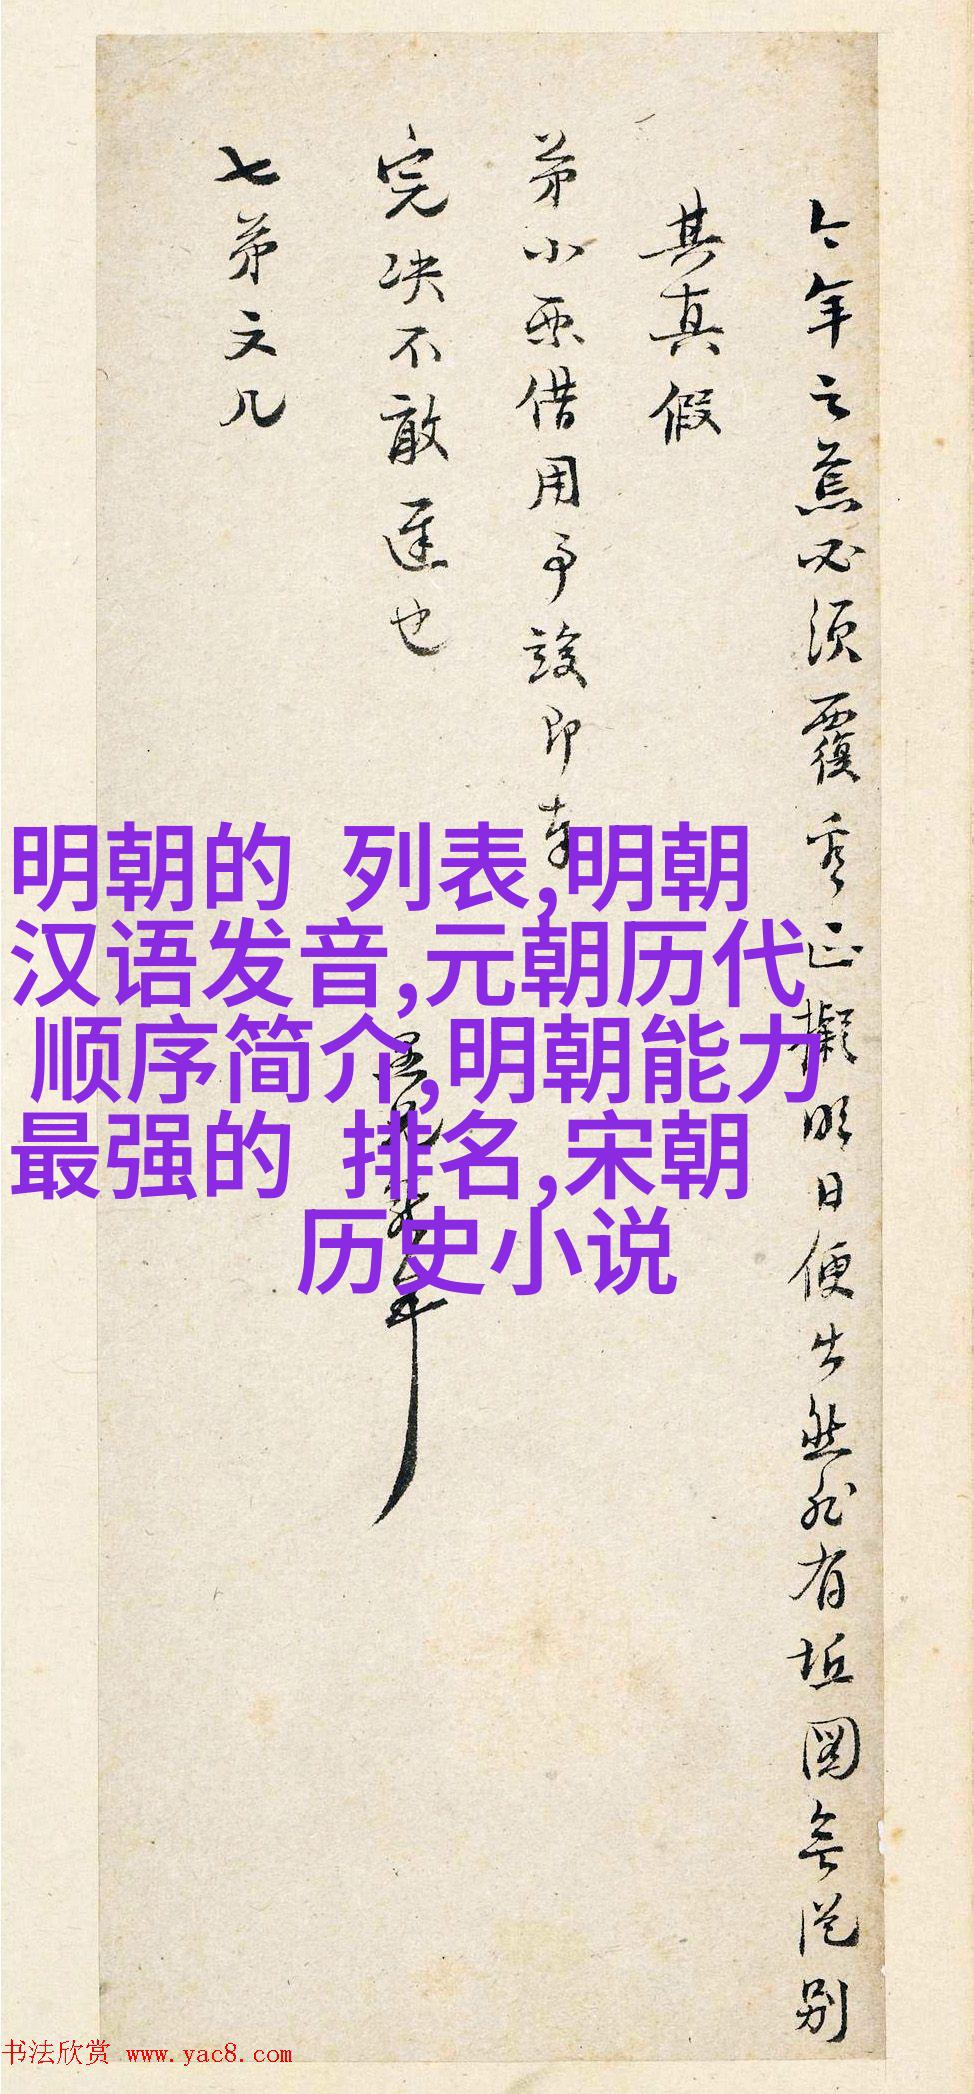 今年之必須覆看正擬明日便出然非有坵圖無從別
其真假
弟小票借用事竣即奉
完决不敢遲也
七弟文几
明朝的 列表,明朝
汉语发音,元朝历代
顺序简介,明朝能力
最强的 排名,宋朝
历史小说
书法欣赏 www.yac8.com